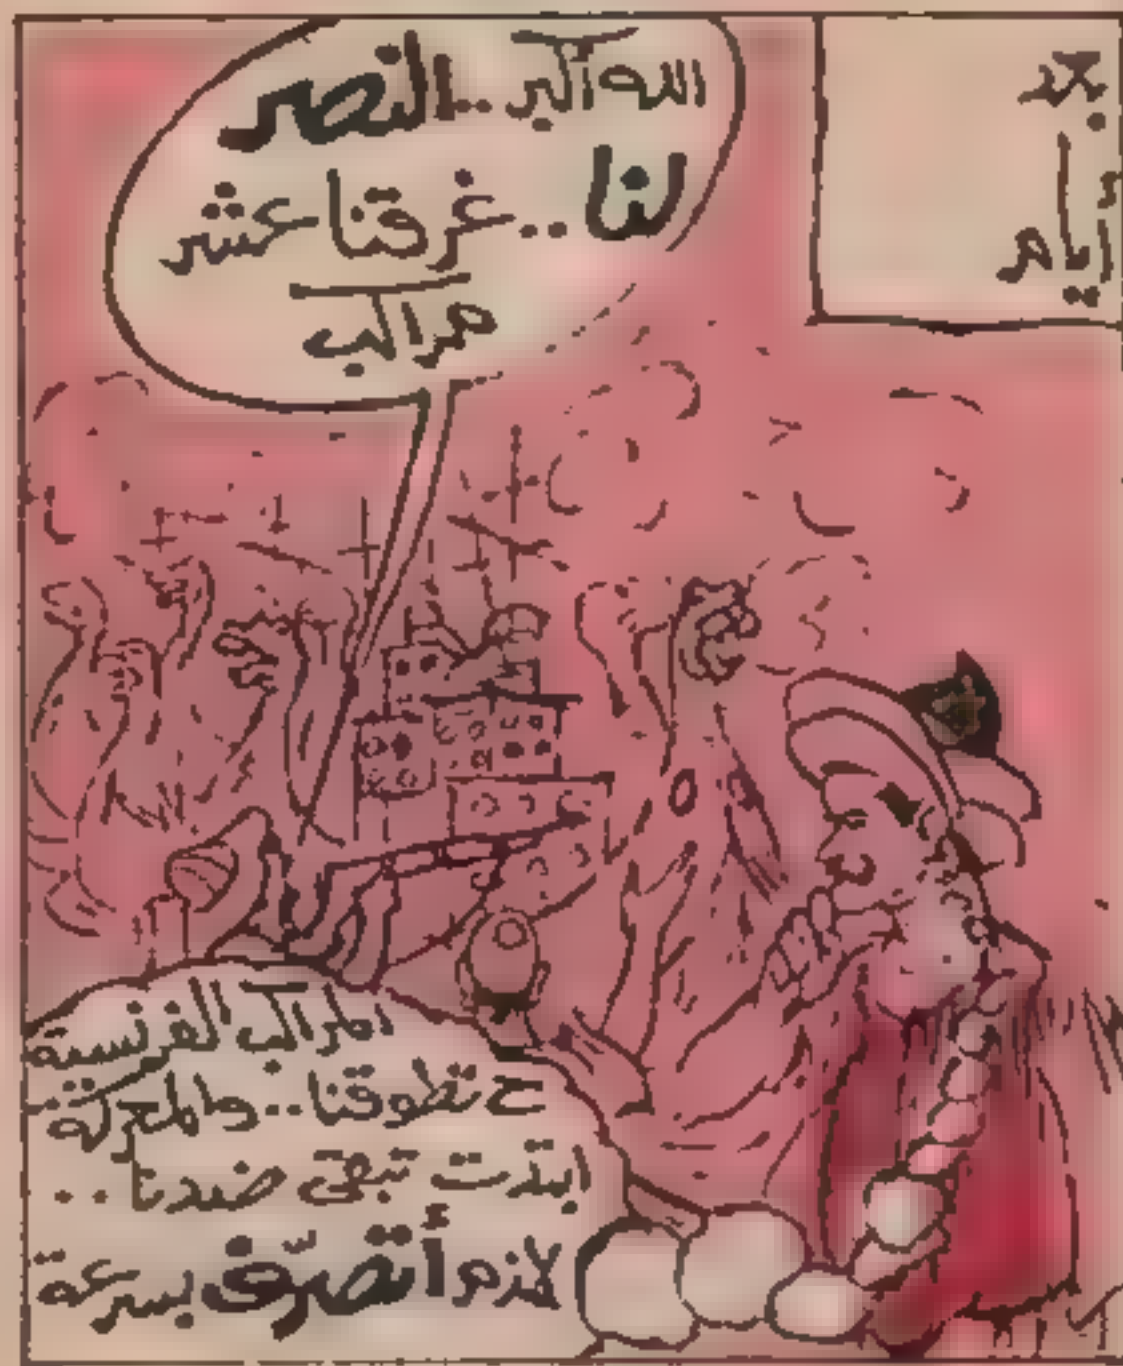 بعد
أيام
الله أكبر.. النصر
لنا.. غرقنا عشر
مراكب
المراكب الفرنسية
ح تطوقنا.. والمعركة
ابتدت تبقى ضدنا..
لازم أتصرّف بسرعة